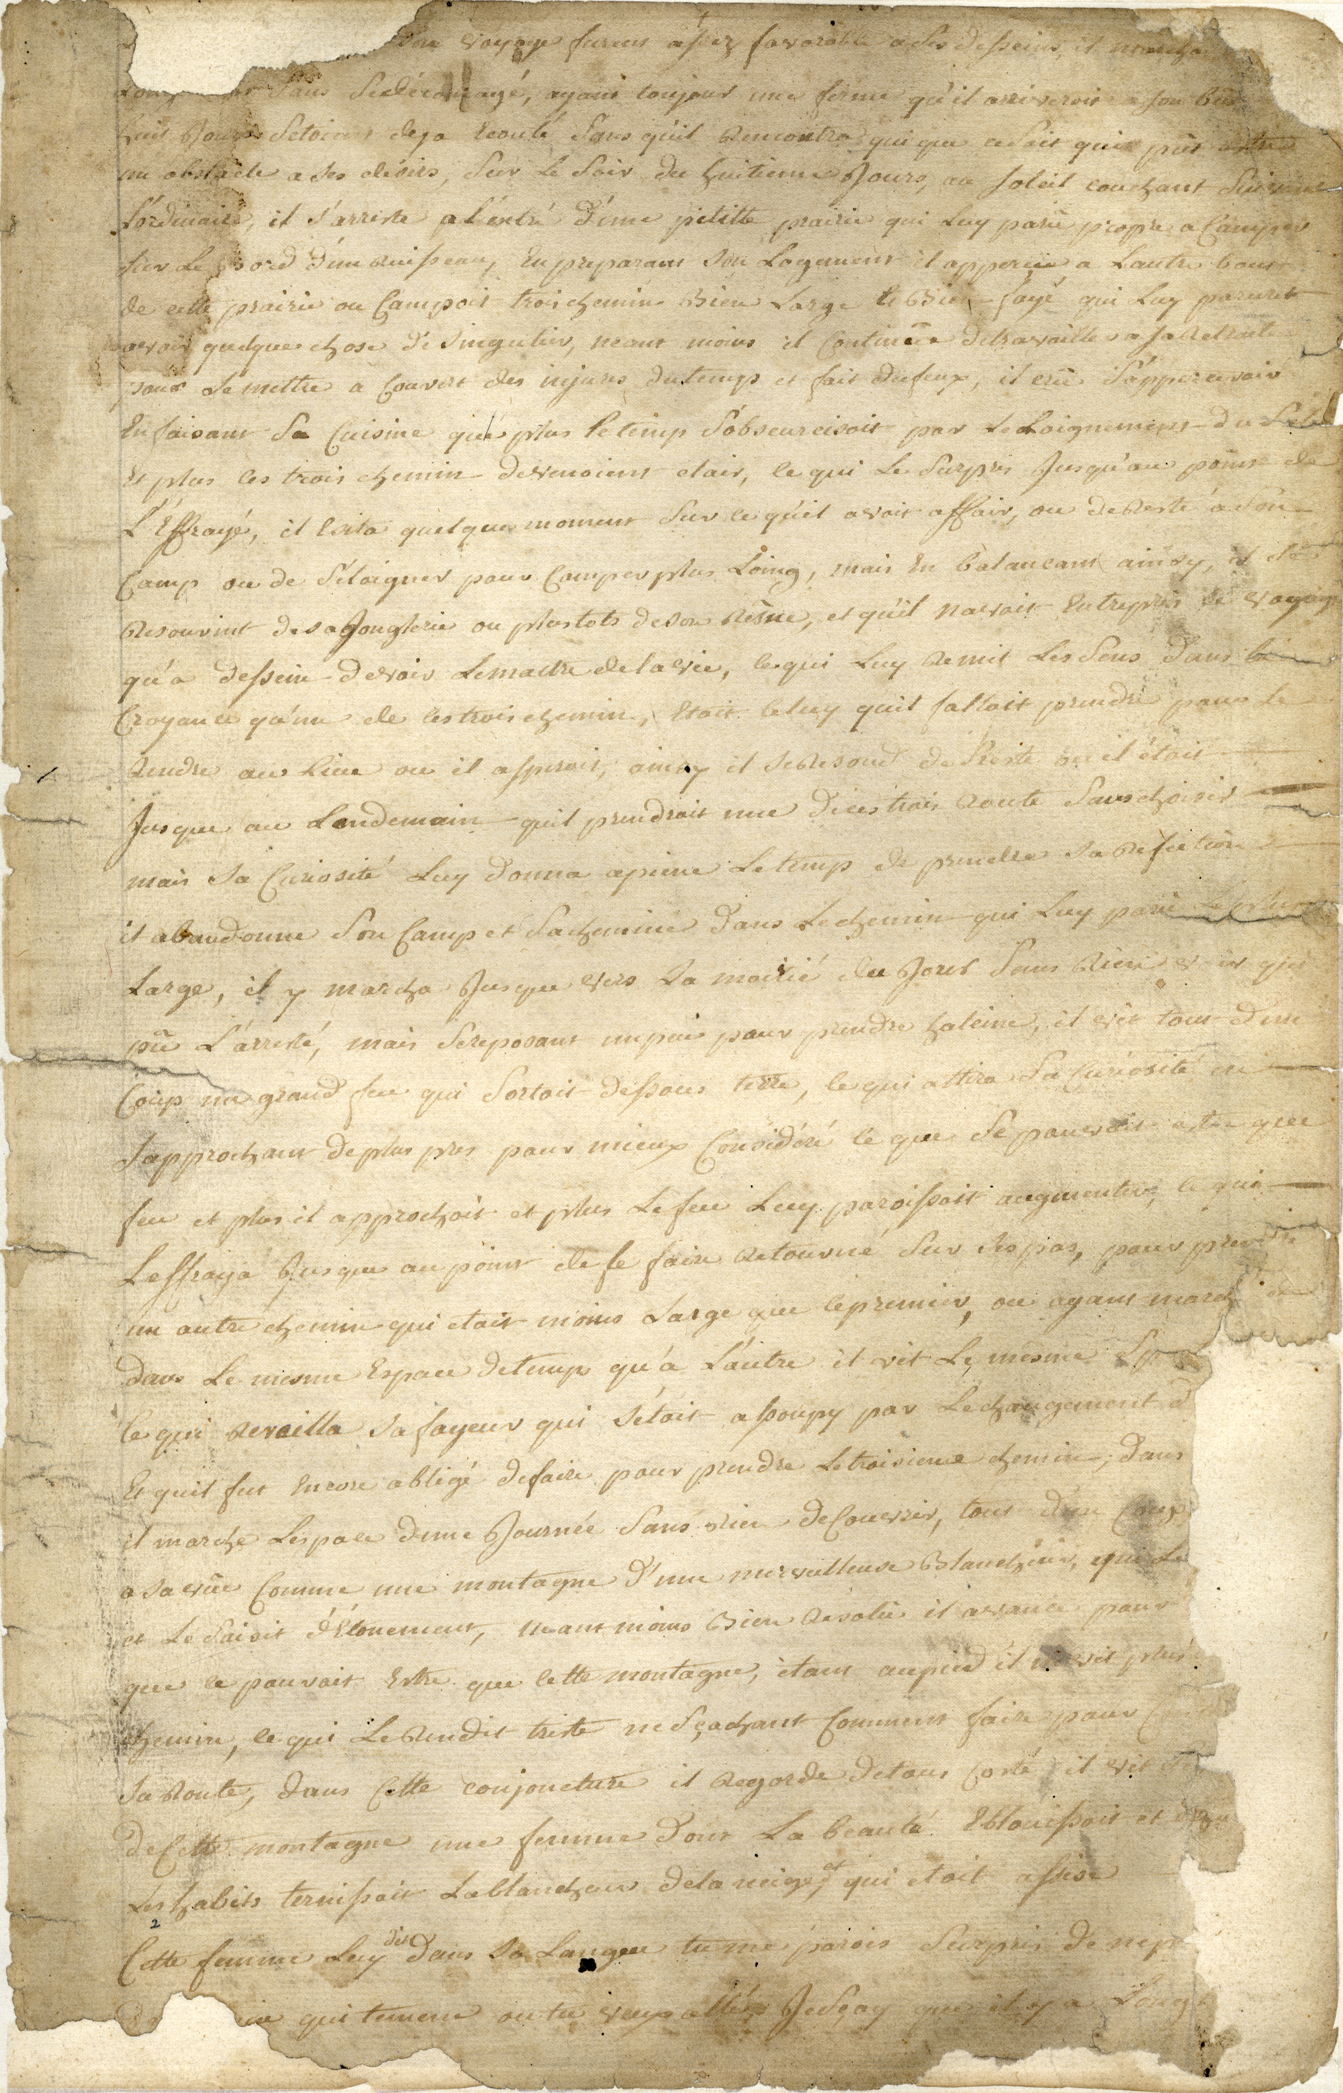 son voyage furent assez favorable a ses desseins, il marcha
sans sedécouragé, ayant toujour une ferme qu'il arriveroit a son but
huit Jours setoient deja Ecoulé sans qu'il Rencontra qui que cesoit qui pût estre
un obstacle a ses désirs, sur Le Soir du huitieme Jours, au soleil couchant suivant
L'ordinaire, il s'arreste a L'entré d'une petitte prairie qui Luy parû propre a Camper
sur Le bord d'un Ruisseau, En preparant son Logement il apperçu a Lautre bout
de cette prairie ou Campoit trois chemin Bien Large et Bien frayé qui Luy parurent
avoir quelque chose de singulier, neant moins il Continüa detravailler a saRetraite
pour se mettre a Couvert des injures dutemps et fait dufeux, il crû s'appercevoir
En faisant sa Cuisine que plus le temp s'obscurcisoit par LeLoignement du Soleil
Et plus les trois chemin devenoient clair, ce qui Le Surpris Jusqu'au point de
L'Effrayé, il Esita quelque moment Sur ce qu'il avoit affair, ou deResté a Son
Camp ou de s'éloigner pour Camper plus Loing, mais En balancant ainsy, il
Resouvint de saJonglerie ou plustots deson Rêsve, et qu'il navoit Entrepris ce voyage
qu'a dessein devoir Lemaitre delavie, ce qui Luy Remit Les Sens dans la
Croyance qu'un de ces trois chemin, Etoit celuy quil falloit prendre pour se
Rendre au Lieu ou il aspiroit, ainsy il seResoud de Resté ou il étoit
Jusque au Lendemain quil prendroit une Deces trois Route Sanschoisir
mais sa Curiosité Luy donna apeine Letemp de prendre sa Refection
il abandonne Son Camp et Sachemine dans Lechemin qui Luy parû Le plus
Large, il y marcha Jusque vers La moitié du Jour Sans Rien voir qui
pû L'arresté, mais Sereposant unpeu pour prendre haleine, il vit tout d'un
Coup un grand feu qui Sortoit dessous terre, ce qui attira Sa Curiosité en
sapprochant deplus pres pour mieux Considéré ce que Ce pouvoit estre que
feu et plus il approchoit et plus Le feu Luy paroissoit augmenter, ce qui
Leffraya Jusque au point de le faire Retourné Sur Ses pas, pour prendre
un autre chemin qui etoit moins Large que lepremier, ou ayant marché
dans Le mesme Espace detemp qu'a L'autre il vit Le mesme
Ce qui Reveilla sa frayeur qui s'étoit assoupy par Lechangement d
Et quil fut Encore obligé defaire pour prendre Letroisieme chemin, dans
il marche Lespace dune Journée Sans Rien deCouvrir, tout d'un Coup
a sa vüe Comme une montagne D'une merveilleuse Blancheur, qui Le
et Le Saisit d'Etonement, neant moins Bien Résolu il avance pour
que ce pouvoit Estre que Cette montagne, étant aupied il ne vit plus
chemin, ce qui LeRendit triste neSçachant Comment faire pour
Sa Route, dans Cette conjoncture il Regarde detous Costé il vit
deCette montagne une femme dont La beauté Eblouissoit et
Les habits ternissoit Lablancheur delaneige, et qui etoit assise
Cette femme Luy dit dans Sa Langue tu me parois Surpris de nep
qui temene ou tu veux allér JeSçay que il y a Long